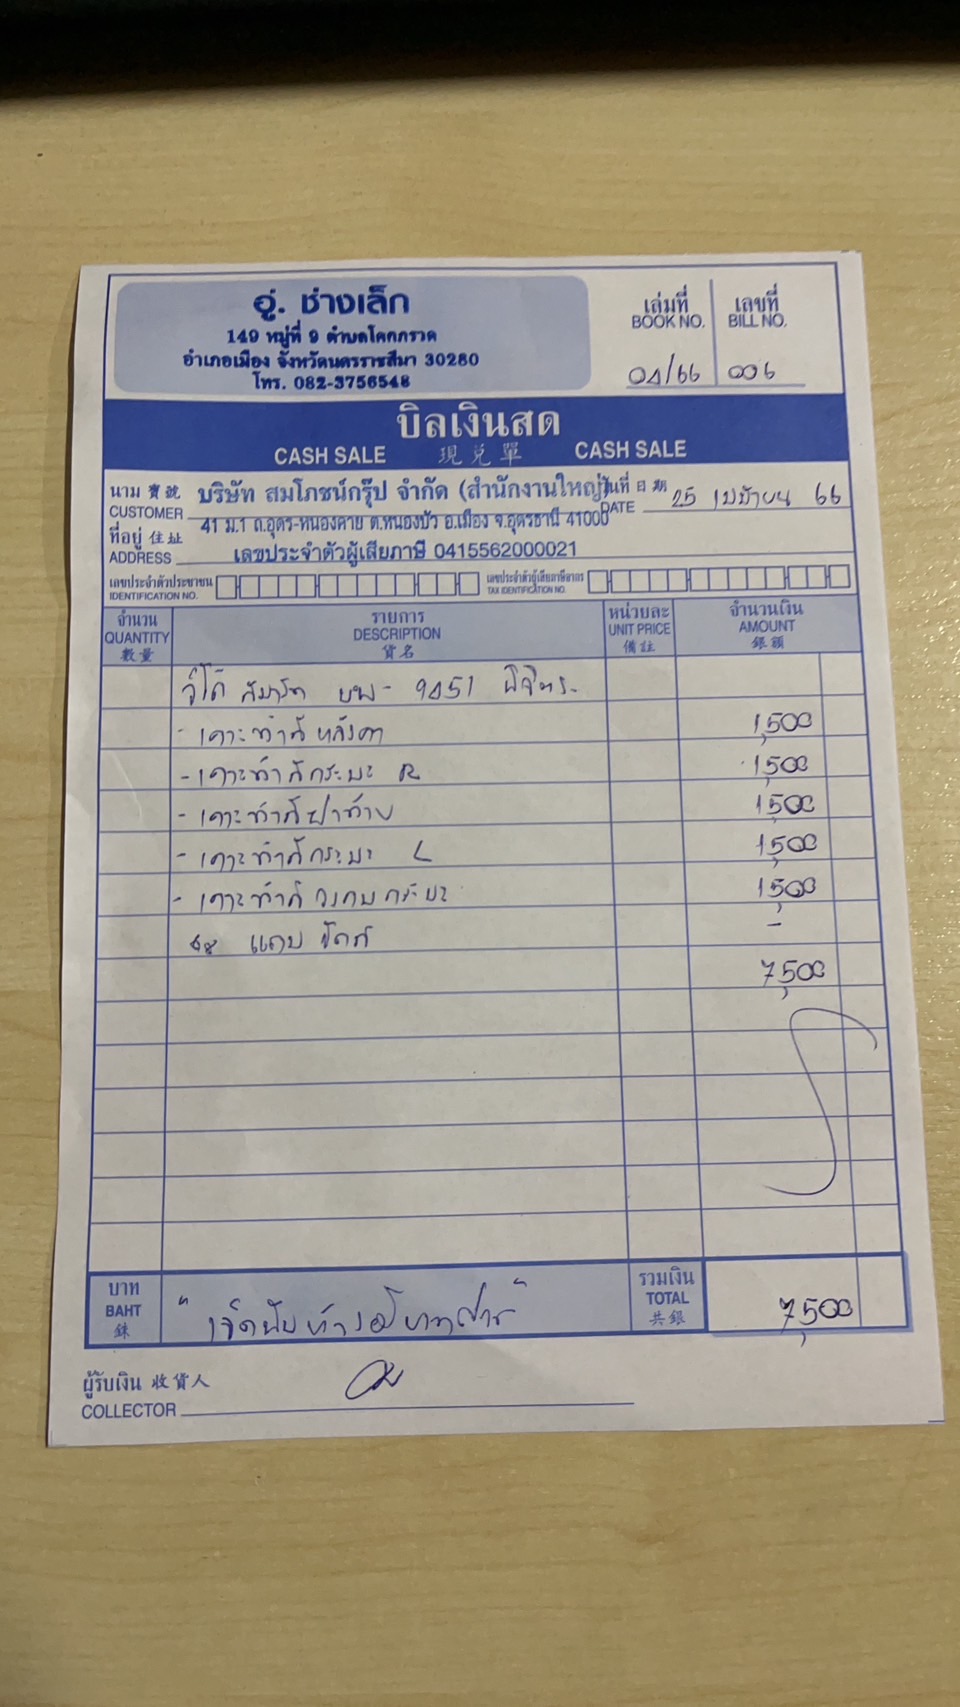 อู่. ช่างเล็ก
149 หมู่ที่ 9 ตำบลโคกกรวด
อำเภอเมือง จังหวัดนครราชสีมา 30280
โทร. 082-3756548
เล่มที่ เลขที่
BOOK NO. BILL NO.
04/66 006
บิลเงินสด
CASH SALE 現兌單 CASH SALE
นาม 寶號 บริษัท สมโภชน์กรุ๊ป จำกัด (สำนักงานใหญ่) วันที่ 日期 25 เมษายน 66
CUSTOMER DATE
ที่อยู่ 住址 41 ม.1 ถ.อุดร-หนองคาย ต.หนองบัว อ.เมือง จ.อุดรธานี 41000
ADDRESS เลขประจำตัวผู้เสียภาษี 0415562000021
เลขประจำตัวประชาชน เลขประจำตัวผู้เสียภาษีอากร
IDENTIFICATION NO. TAX IDENTIFICATION NO.
จำนวน รายการ หน่วยละ จำนวนเงิน
QUANTITY DESCRIPTION UNIT PRICE AMOUNT
數量 貨名 備註 銀額
9451
- เคาะทำสีหลังคา 1,500
- เคาะทำสีกระบะ R 1,500
- เคาะทำสีฝาท้าย 1,500
- เคาะทำสีกระบะ L 1,500
- เคาะทำสี กระบะ 1,500
แถม ขัดสี -
7,500
บาท รวมเงิน
BAHT "เจ็ดพันห้าร้อยบาทถ้วน" TOTAL 7,500
銖 共銀
ผู้รับเงิน 收貨人
COLLECTOR